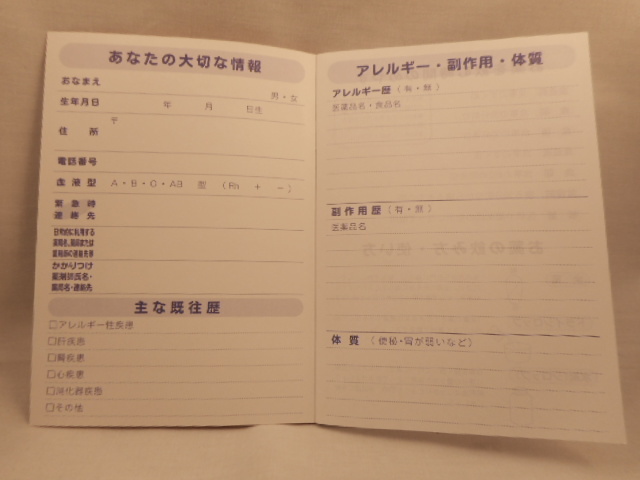 あなたの大切な情報
おなまえ
男・女
生年月日 年 月 日生
〒
住所
電話番号
血液型 A・B・O・AB 型 (Rh + −)
緊急時
連絡先
日常的に利用する
薬局名、薬店または
薬局店の連絡先等
かかりつけ
薬剤師氏名・
薬局名・連絡先
主な既往歴
□アレルギー性疾患
□肝疾患
□腎疾患
□心疾患
□消化器疾患
□その他
アレルギー・副作用・体質
アレルギー歴(有・無)
医薬品名・食品名
副作用歴(有・無)
医薬品名
体質(便秘・胃が弱いなど)